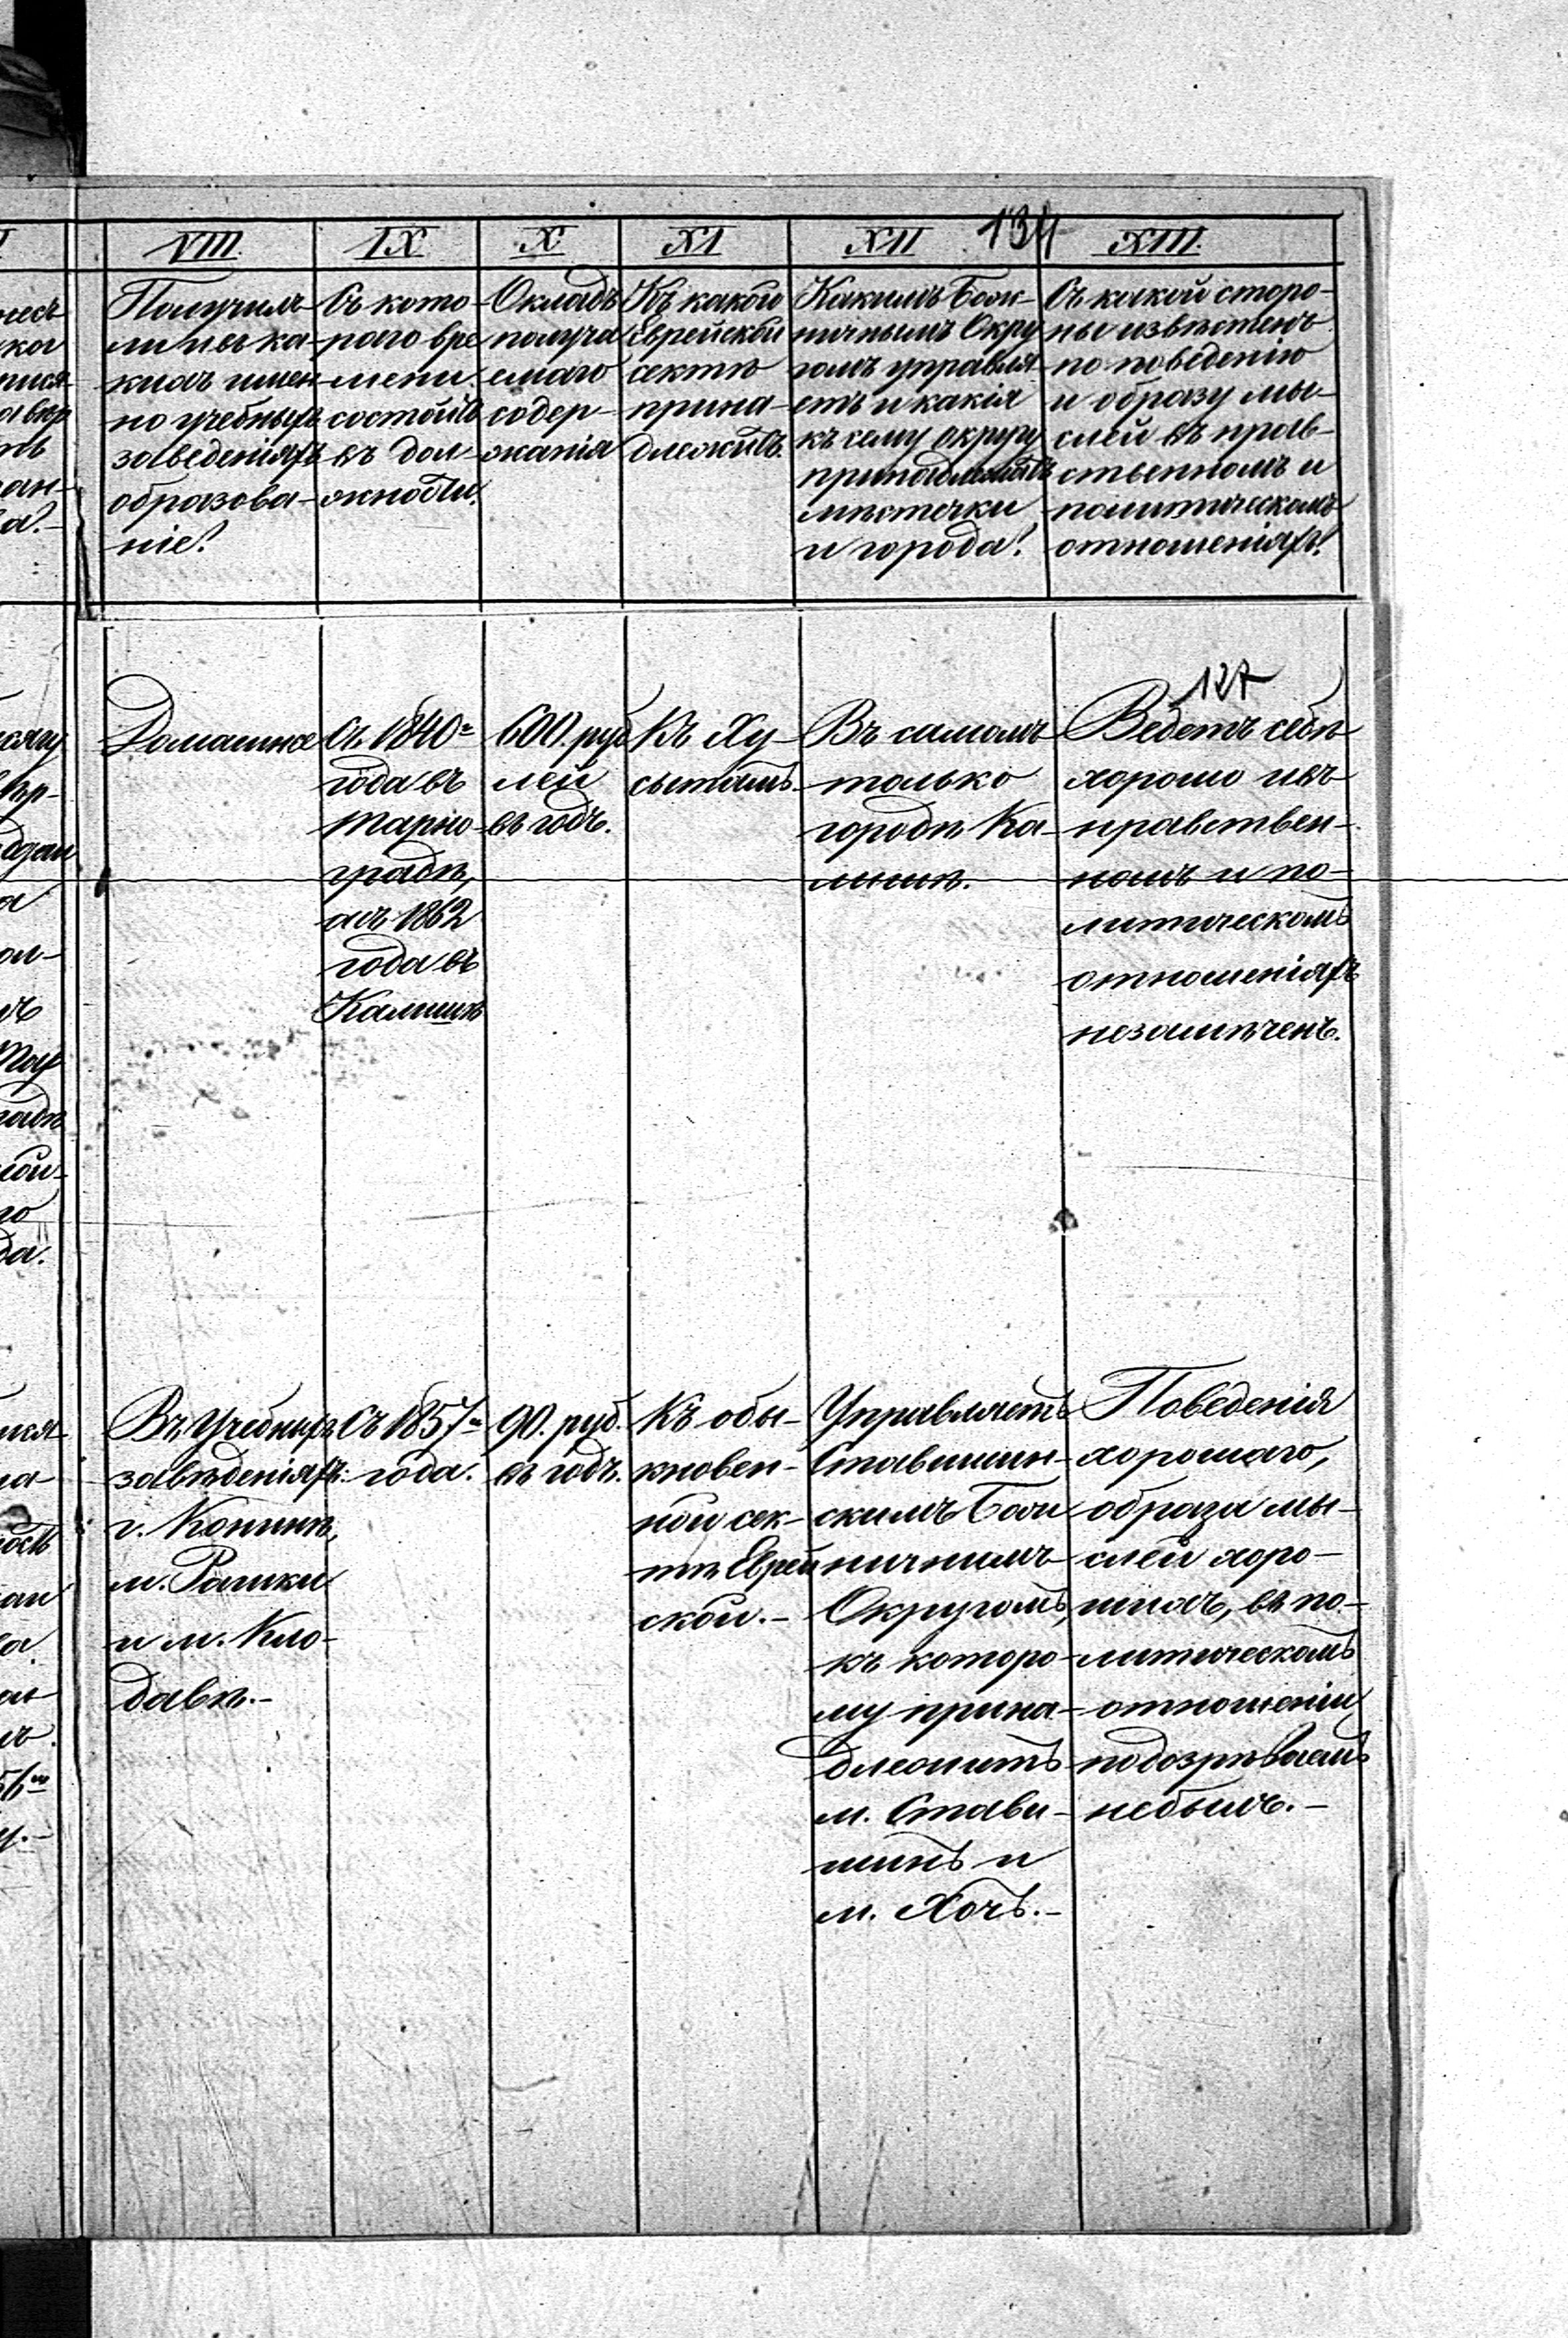 134
VIII.
Получилъ
ли и въ ка-
кихъ имен-
но учебныхъ
заведеніяхъ
образова-
ніе?
IX
Съ кото-
раго вре
мени
состоитъ
въ дол-
жности?
X
Окладъ
получа
емаго
содер-
жанія
XI
Къ какой
Еврейской
сектѣ
прина-
длежитъ
XII
Какимъ Бож-
ничнымъ Окру
гомъ управля-
етъ и какія
къ сему округу
принадлежатъ
мѣстечки
и города?
XIII.
Съ какой сторо-
ны извѣстенъ
по поведенію
и образу мы-
слей въ нрав-
ственномъ и
политическомъ
отношеніяхъ?
127
Домашнее
Съ 1840-
года въ
Тарно-
градѣ,
а съ 1862
года въ
Калишѣ
600. руб
лей
въ годъ.
Къ Ху-
сытамъ
Въ самомъ
только
городѣ Ка-
лишѣ.
Ведетъ себя
хорошо и въ
нравствен-
номъ и по-
литическомъ
отношеніяхъ
незамѣченъ.
Въ Учебныхъ
заведеніяхъ:
г. Конинѣ,
м.
и м. Кло-
давѣ.-
Съ 1857-
года.
90. руб.
въ годъ.
Къ обы-
кновен-
ной сек-
тѣ Еврей
ской.-
Управляетъ
Ставишин-
скимъ Бож
ничнымъ
Округомъ,
къ которо-
му прина-
длежитъ
м. Стави-
шинъ и
м. Хочъ.-
Поведенія
хорошаго,
образа мы-
слей хоро-
шихъ, въ по-
литическомъ
отношеніи
подозрѣваемъ
небылъ.-